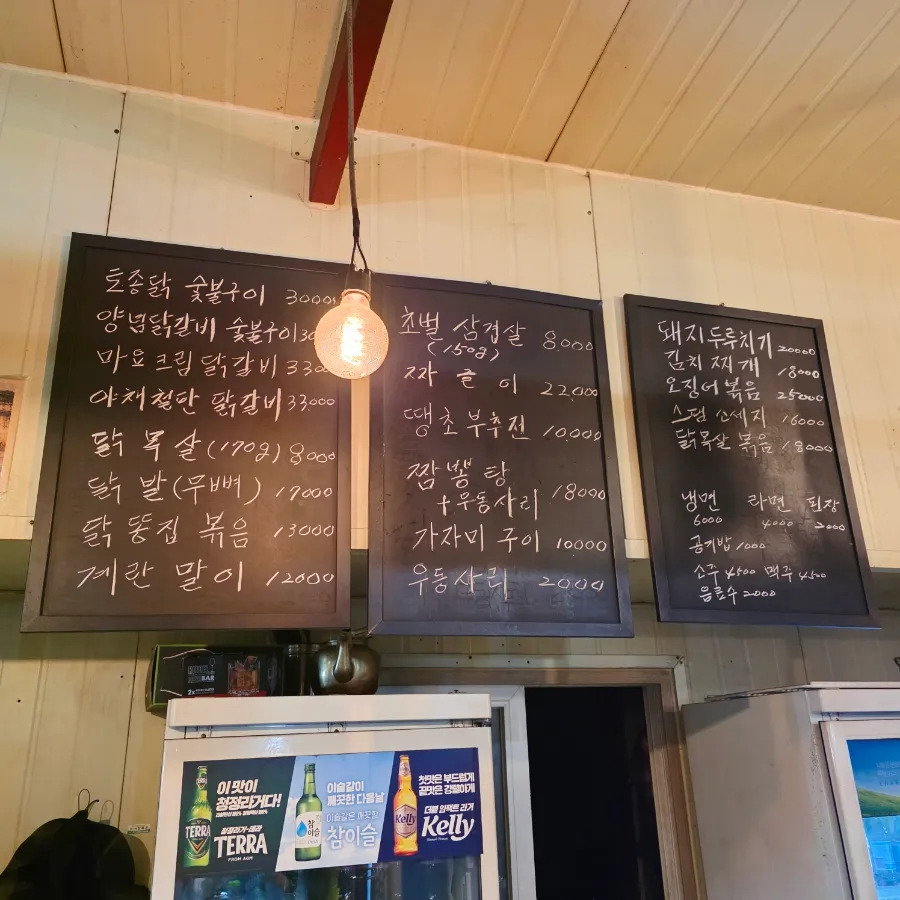 토종닭 숯불구이 30000
양념닭갈비 숯불구이
마요크림 닭갈비
야채철판 닭갈비 33000
닭 목살 (170g) 8000
닭 발 (무뼈) 17000
닭 똥집 볶음 13000
계란 말이 12000
초벌 삼겹살 8,000
(150g)
짜글이 22,000
땡초부추전 10,000
짬뽕탕
+우동사리 18000
가자미 구이 10000
우동사리 2000
돼지두루치기 20000
김치찌개 18000
오징어볶음 25000
16000
닭목살 볶음 18000
냉면 라면 된장
6000 4000 2000
공기밥 1000
소주 4500 맥주 4500
음료수 2000
이 맛이
청정라거다!
청정라거-테라
TERRA
FROM AGM
TERRA
이슬같이
깨끗한 다음날
이슬같은 깨끗함
참이슬
참이슬
첫맛은 부드럽게
끝맛은 강렬하게
더블 임팩트 라거
Kelly
Kelly